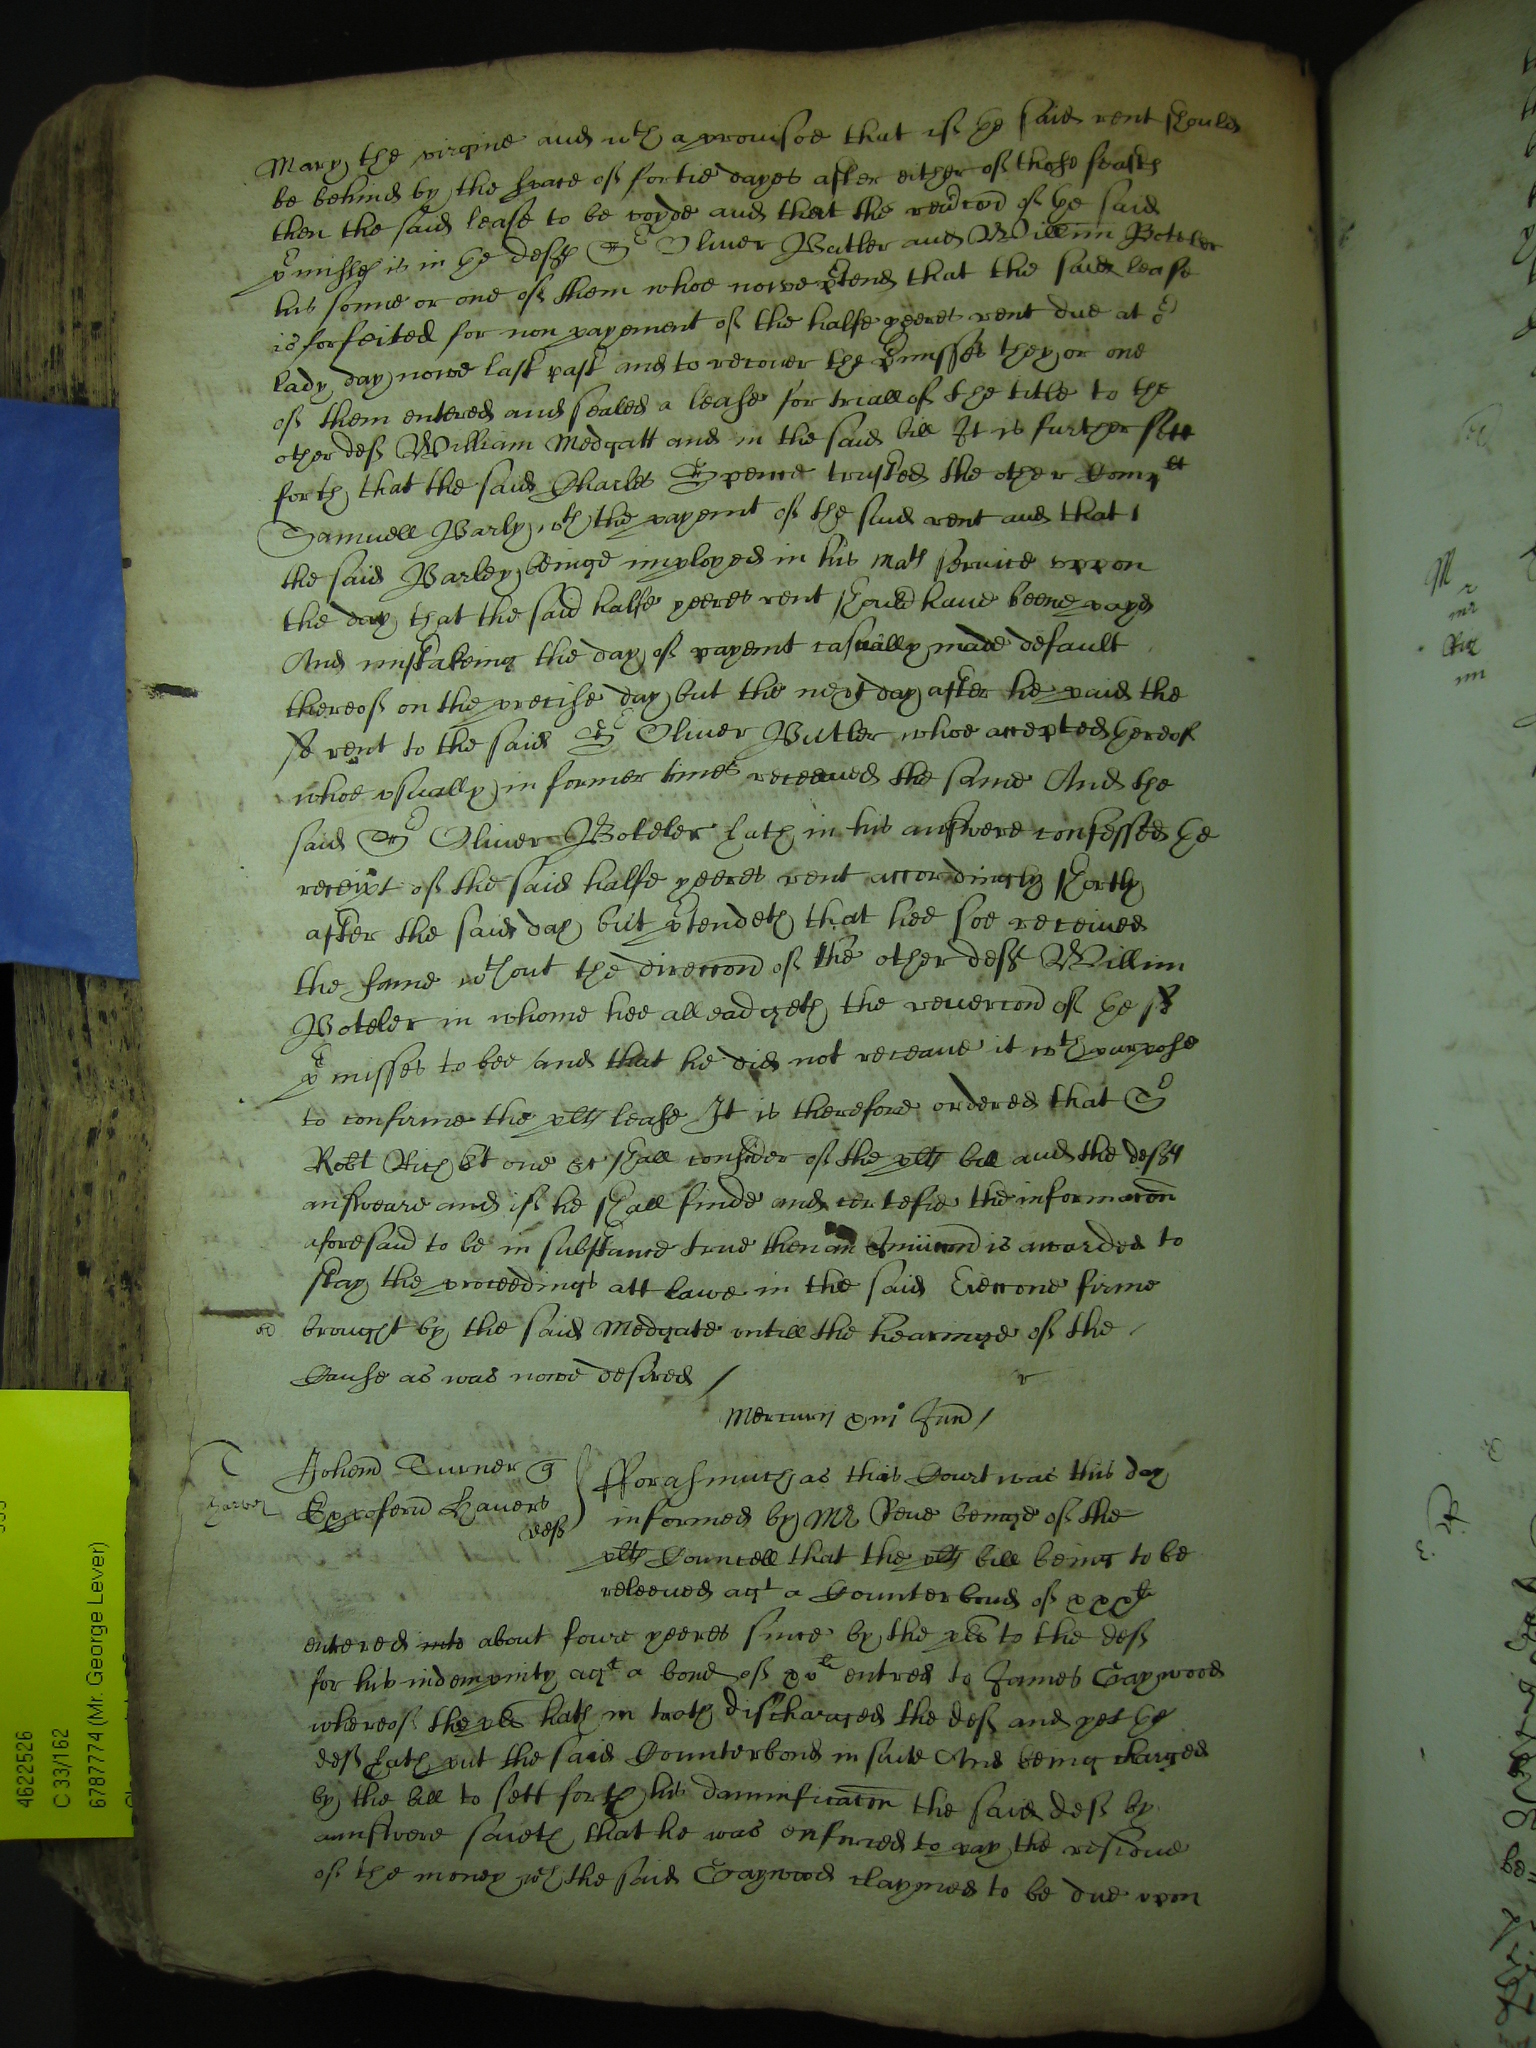 Mary the virgine and wth a provisoe that if ye said rent should
be behind by the space of fortie dayes after either of those feasts
then the said lease to be voyde and that the revercon of ye said
pmisses is in ye deft Sr Oliver Butler and Willim Boteler
his sonne or one of them whoe nowe ptend that the said lease
is forfeited for non payement of the halfe yeeres rent due at or
lady day nowe last past and to recover the pmisses they or one
of them entered and sealed a lease for triall of the title to the
other deft William Medgatt and in the said bill It is further sett
forth that the said Charles Spence trusted the other Complt
Samuell Barly wth the payemt of the said rent and that
the said Barley beinge imployed in his mats service uppon
the day that the said halfe yeeres rent should have beene payd
And mistakeing the day of payemt casually made default
thereof on the precise day but the next day after he paid the
sd rent to the said Sr Oliver Butler whoe accepted thereof
whoe usually in former times receaved the same And the
said Sr Oliver Boteler hath in his answere confessed ye
receipt of the said halfe yeeres rent accordingly shortly
after the said day but ptendeth that hee soe received
the same wthout the direccon of the other deft Willim
Boteler in whome hee alleadgeth the revercon of ye sd
pmisses to bee and that he did not receave it wth purpose
to confirme the plts lease It is therefore ordered that Sr
Robt Rich kt one &c shall consider of the plts bill and the defts
answeare and if he shall finde and certefie the informacon
aforesaid to be in substance true then an Iniuncon is awarded to
stay the proceedings att lawe in the said Eieccone firme
brought by the said Medgate untill the hearinge of the
Cause as was nowe desired
Mercurij xiij Junij
Johem Turner q
Xpoferu Havers
deft
fforasmuch as this Court was this day
informed by Mr Reve beinge of the
plts Councell that the plts bill being to be
releeved agt a Counterbond of xxxli
entered into about foure yeeres since by the plt to the deft
for his indempnity agt a bond of xvli entred to James Gaywood
whereof the plt hath in troth discharged the deft and yet ye
deft hath put the said Counterbond in suite And being charged
by the bill to sett forth his damnificacon the said deft by
answere saieth that he was enforced to pay the residue
of the money wch the said Gaywood claymed to be due upon
4622526
C 33/162
6787774 (Mr. George Lever)